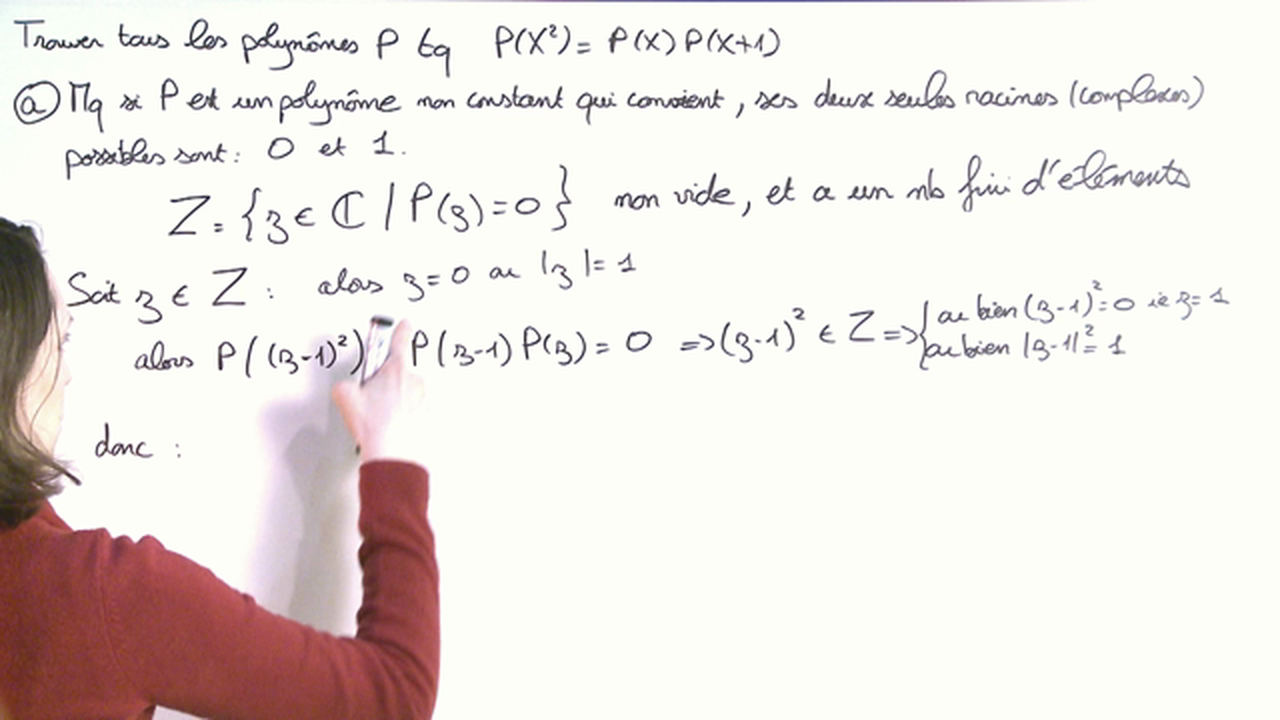 Trouver tous les polynômes P tq P(X²) = P(X) P(X+1)
ⓐ Mq si P est un polynôme non constant qui convient, ses deux seules racines (complexes)
possibles sont : 0 et 1.
Z = {z ∈ ℂ / P(z) = 0} non vide, et a un nb fini d'éléments
Soit z ∈ Z : alors z = 0 ou |z| = 1
alors P((z-1)²) P(z-1) P(z) = 0 => (z-1)² ∈ Z => { ou bien (z-1)² = 0 ie z = 1
ou bien |z-1|² = 1
donc :